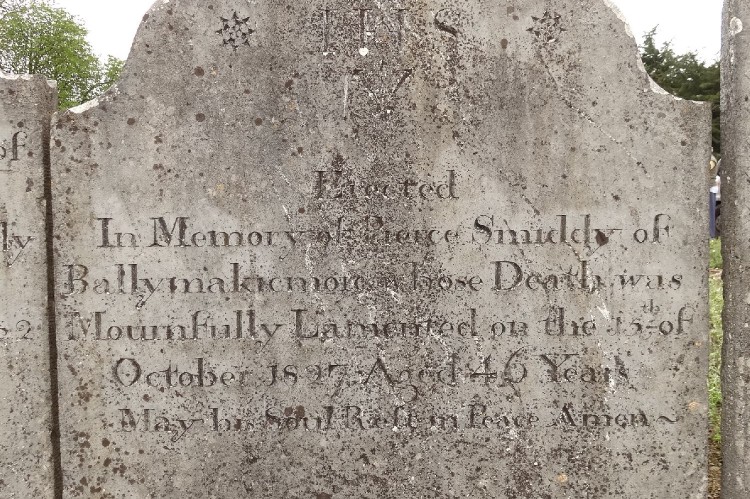 IHS
Erected
In Memory of Pierce Smiddy of
Ballymakicmore whose Death was
Mournfully Lamented on the 15th of
October 1827 Aged 46 Years
May his Soul Rest in Peace Amen ~
of
lly
52